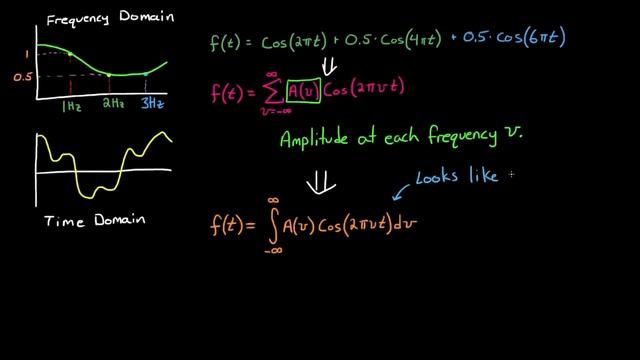 Frequency Domain
1
0.5
1Hz 2Hz 3Hz
Time Domain
f(t) = Cos(2πt) + 0.5·Cos(4πt) + 0.5·cos(6πt)
⇓
f(t) = ∞∑v=-∞ A(v) Cos(2πvt)
Amplitude at each frequency v.
⇓
Looks like
f(t) = ∞∫-∞ A(v) Cos(2πvt)dv